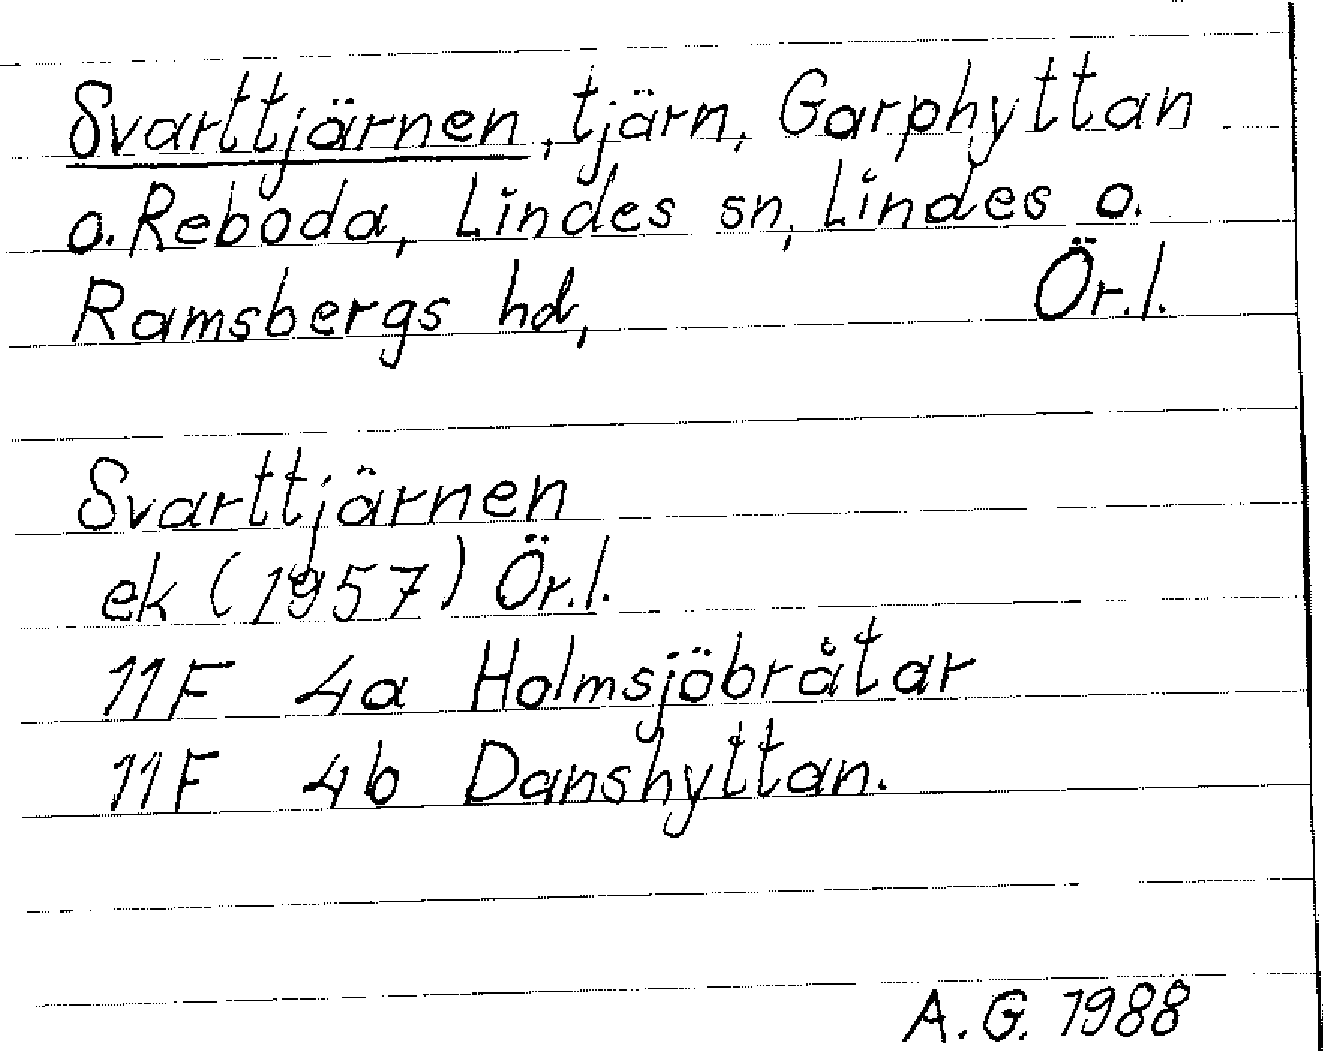 Svarttjärnen, tjärn, Garphyttan
o. Reboda, Lindes sn, Lindes o.
Ramsbergs hd, Ör.l.
Svarttjärnen
ek (1957) Ör.l.
11F 4a Holmsjöbråtar
11F 4b Danshyttan.
A.G. 1988